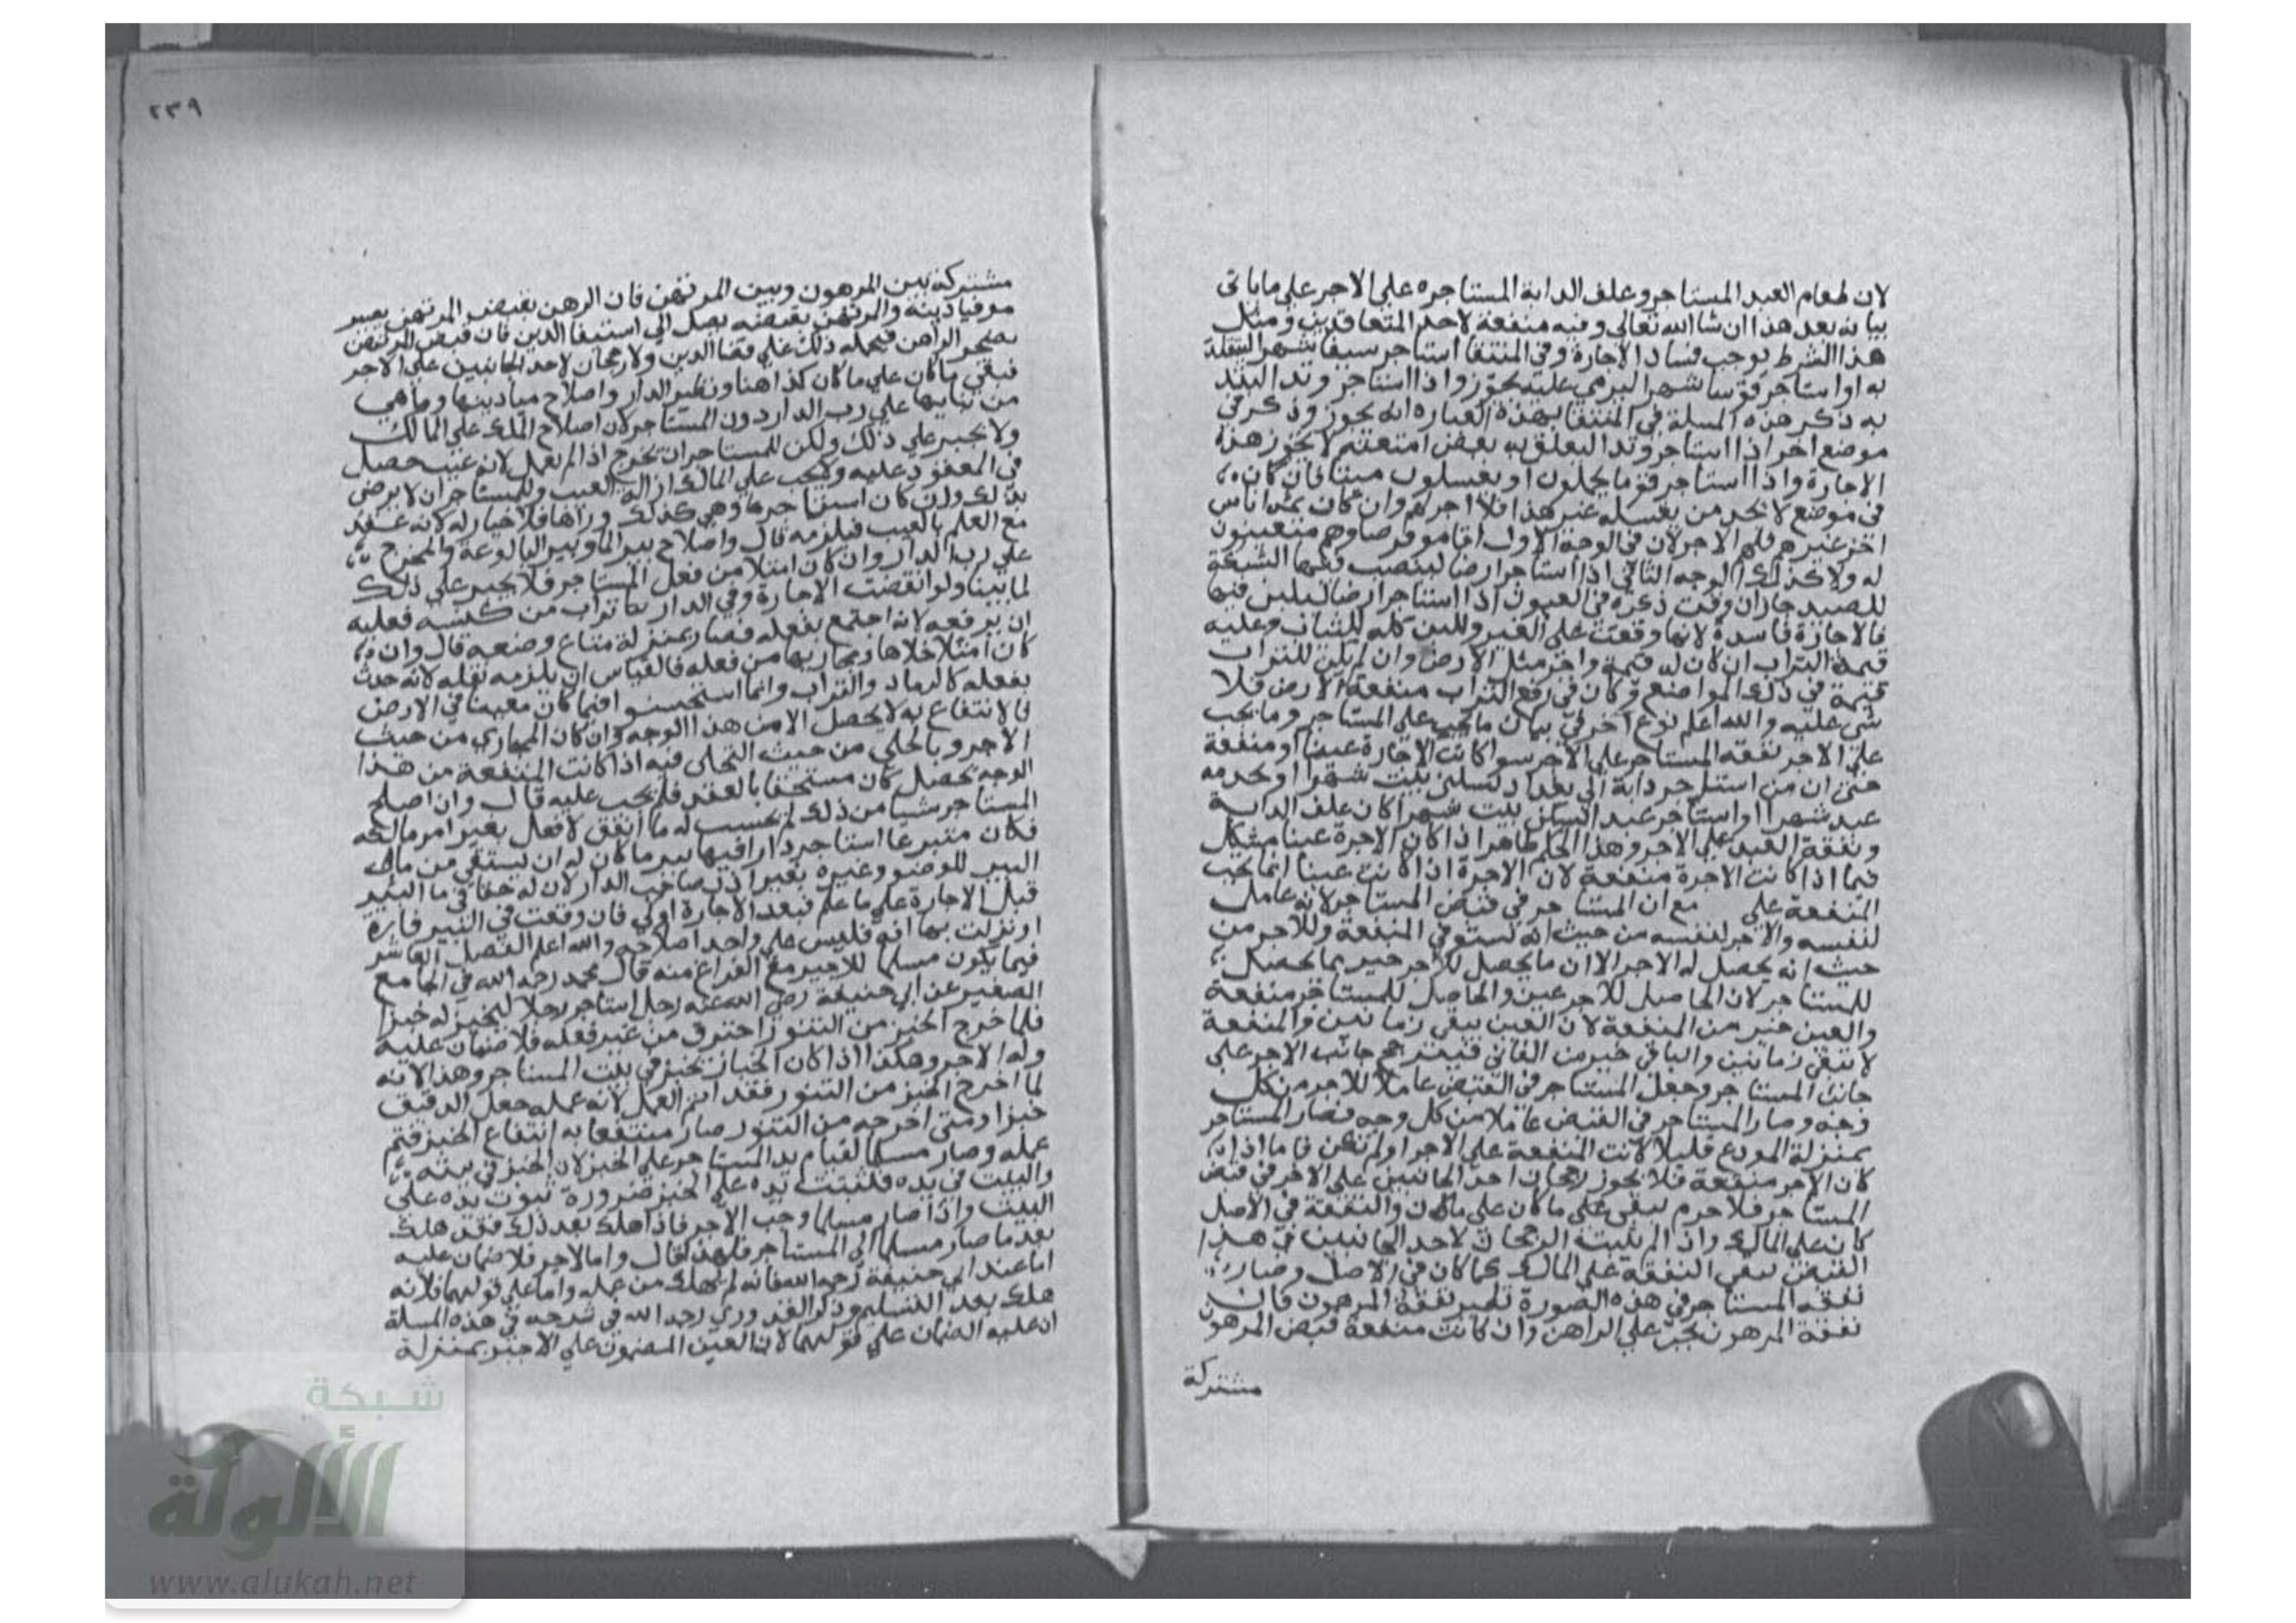 لان طعام العبد المستاجر وعلف الدابة المستاجره على الاجر على ما ياتى
بيانه بعد هذا ان شا الله تعالى وفيه منفعة لاحد المتعاقدين ومثل
هذا الشرط يوجب فساد الاجارة وفى المنتقا استاجر سيفا شهرا ليتقلد
به او استاجر قوسا شهرا ليرمي عليه يجوز واذا استاجر وتدا ليتد
به ذكر هذه المسلة في المنتقا بهذه العباره انه يجوز وذكر في
موضع اخر اذا استاجر وتدا ليعلق به بعض امتعته لا يجوز هذه
الاجارة واذا استاجر قوما يحملون او يغسلون ميتا فان كان
فى موضع لا يجد من يغسله غير هذا فلا اجر لهم وان كان ثمه اناس
اخر غيرهم فلهم الاجر لان في الوجه الاول اقاموا فرضا وهم متعينون
له ولا كذلك الوجه الثاني اذا استاجر ارضا لينصب فيها الشبكة
للصيد جاز ان وقت ذكره في العيون اذا استاجر ارضا ليلبن فيها
فالاجارة فاسدة لانها وقعت على الغير واللبن كله للشاب وعليه
قيمة التراب ان كان له قيمة واجر مثل الارض وان لم يكن للتراب
قيمة في ذلك المواضع وكان في رفع التراب منفعة الارض فلا
شى عليه والله اعلم نوع اخر في بيان ما يجب على المستاجر وما يجب
على الاجر نفقه المستاجر على الاجر سوا كانت الاجارة عينا او منفعة
حتى ان من استاجر دابة الى بغداد بسكنى بيت شهرا او خدمه
عبد شهرا او استاجر عبدا بسكنى بيت شهرا كان علف الدابة
ونفقة العبد على الاجر وهذا الحكم ظاهر اذا كان الاجرة عينا مشكل
فيما اذا كانت الاجرة منفعة لان الاجرة اذا كانت عينا انما يجب
المنفعة على مع ان المستاجر في قبض المستاجر لانه عامل
لنفسه والاجر لنفسه من حيث انه يستوفي المنفعة وللاجر من
حيث انه يحصل له الاجر الا ان ما يحصل للاجر خير مما يحصل
للمستاجر لان الحاصل للاجر عين والحاصل للمستاجر منفعة
والعين خير من المنفعة لان العين يبقى زمانين والمنفعة
لا تبقى زمانين والباقي خير من الفاني فيترجح جانب الاجر على
جانب المستاجر وجعل المستاجر في القبض عاملا للاجر من كل
وجه وصار المستاجر في القبض عاملا من كل وجه فصار المستاجر
بمنزلة المودع قليلا كانت المنفعة على الاجر او لم تكن فاما اذا
كان الاجر منفعة فلا يجوز رجحان احد الجانبين على الاخر في قبض
المستاجر فلا جرم يبقى على ما كان على ما كان والنفقة في الاصل
كان على المالك واذا لم يثبت الرجحان لاحد الجانبين في هذا
القبض يبقى النفقة على المالك كما كان في الاصل وصار
نفقه المستاجر في هذه الصورة نظير نفقة المرهون فان
نفقة المرهون يجب على الراهن وان كانت منفعة قبض المرهون
مشتركة
٢٣٩
مشتركة بين المرهون وبين المرتهن فان الرهن بقبض المرتهن يصير
موفيا دينه والمرتهن بقبضه يصل الى استيفا الدين فان قبض المرتهن
يضجر الراهن فيحمله ذلك على قضا الدين ولا رجحان لاحد الجانبين على الاخر
فبقى ما كان على ما كان كذا هنا ونطير الدار واصلاح ميادينها وما هي
من بنايها على رب الدار دون المستاجر لان اصلاح الملك على المالك
ولا يجبر على ذلك ولكن للمستاجر ان يخرج اذا لم يعمل لانه عيب حصل
فى المعقود عليه ويجب على المالك ازالة العيب وللمستاجر ان لا يرضى
بذلك وان كان استاجرها وهي كذلك وراها فلا خيار له لانه عقد
مع العلم بالعيب فيلزمه قال واصلاح بير الما وبير البالوعة والمخرج
على رب الدار وان كان امتلا من فعل المستاجر فلا يجبر على ذلك
لما بينا ولو انقضت الاجارة وفي الدار تراب من كنسه فعليه
ان يرفعه لانه اجتمع بفعله فصار بمنزلة متاع وضعه قال وان
كان امتلا خلاها ومجاريها من فعله فالقياس ان يلزمه نقله لانه حدث
بفعله كالرماد والتراب وانما استحسنوا فيما كان مغيبا في الارض
فالانتفاع به لا يحصل الا من هذا الوجه وان كان المجازي من حيث
الاجر وبالحلي من حيث التحلى فيه اذا كانت المنفعة من هذا
الوجه تحصل كان مستحقا بالعقد فلم يجب عليه قال وان اصلح
المستاجر شيا من ذلك لم يحتسب له ما انفق لا فعل بغير امر مالكه
فكان متبرعا استاجر دارا فيها بير ما كان له ان يستقي من مال
البير للوضو وغيره بغير اذن صاحب الدار لان له حقا في ما البير
قبل الاجارة على ما علم فبعد الاجارة اولى فان وقعت في البير فارة
او نزلت بها افة فليس على واحد اصلاحه والله اعلم الفصل العاشر
فيما يكون مسلما للاجير مع الفراغ منه قال محمد رحمه الله في الجامع
الصغير عن ابي حنيفة رضى الله عنه رجل استاجر رجلا ليخبز له خبزا
فلما خرج الخبز من التنور احترق من غير فعله فلا ضمان عليه
وله الاجر وهكذا اذا كان الخباز يخبز في بيت المستاجر وهذا لانه
لما اخرج الخبز من التنور فقد اتم العمل لانه عمله جعل الدقيق
خبزا ومتى اخرجه من التنور صار منتفعا به انتفاع الخبز فتم
عمله وصار مسلما لقيام يد المستاجر على الخبز لان الخبز في بيته
والبيت في يده فثبتت يده على الخبز ضرورة ثبوت يده على
البيت واذا صار مسلما وجب الاجر فاذا هلك بعد ذلك فقد هلك
بعد ما صار مسلما الى المستاجر فلهذا قال واما لاجر فلا ضمان عليه
اما عند ابي حنيفة رحمه الله فانه لم يهلك من عمله واما على قولهما فلانه
هلك بعد التسليم وذكر القدوري رحمه الله في شرحه في هذه المسلة
ان عليه الضمان على قولهما لان العين المضمون على الاجير بمنزلة
شبكة
الألوكة
www.alukah.net